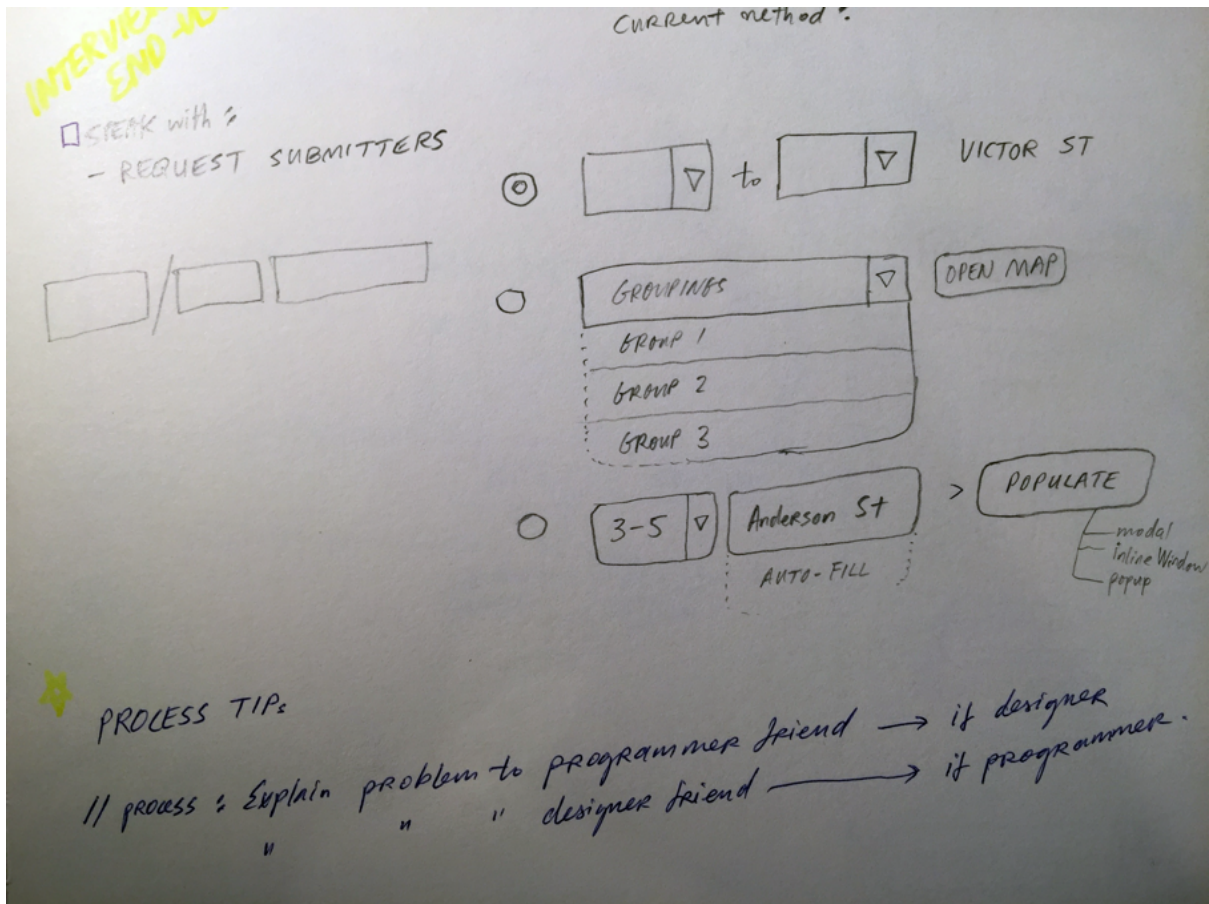 Current method :
INTERVIEW
END
SPEAK with :
- REQUEST SUBMITTERS
to
VICTOR ST
GROUPINGS
OPEN MAP
GROUP 1
GROUP 2
GROUP 3
3-5
Anderson St
>
POPULATE
AUTO-FILL
modal
inline Window
popup
PROCESS TIP:
// process : Explain problem to programmer friend → if designer
" " " designer friend → if programmer.